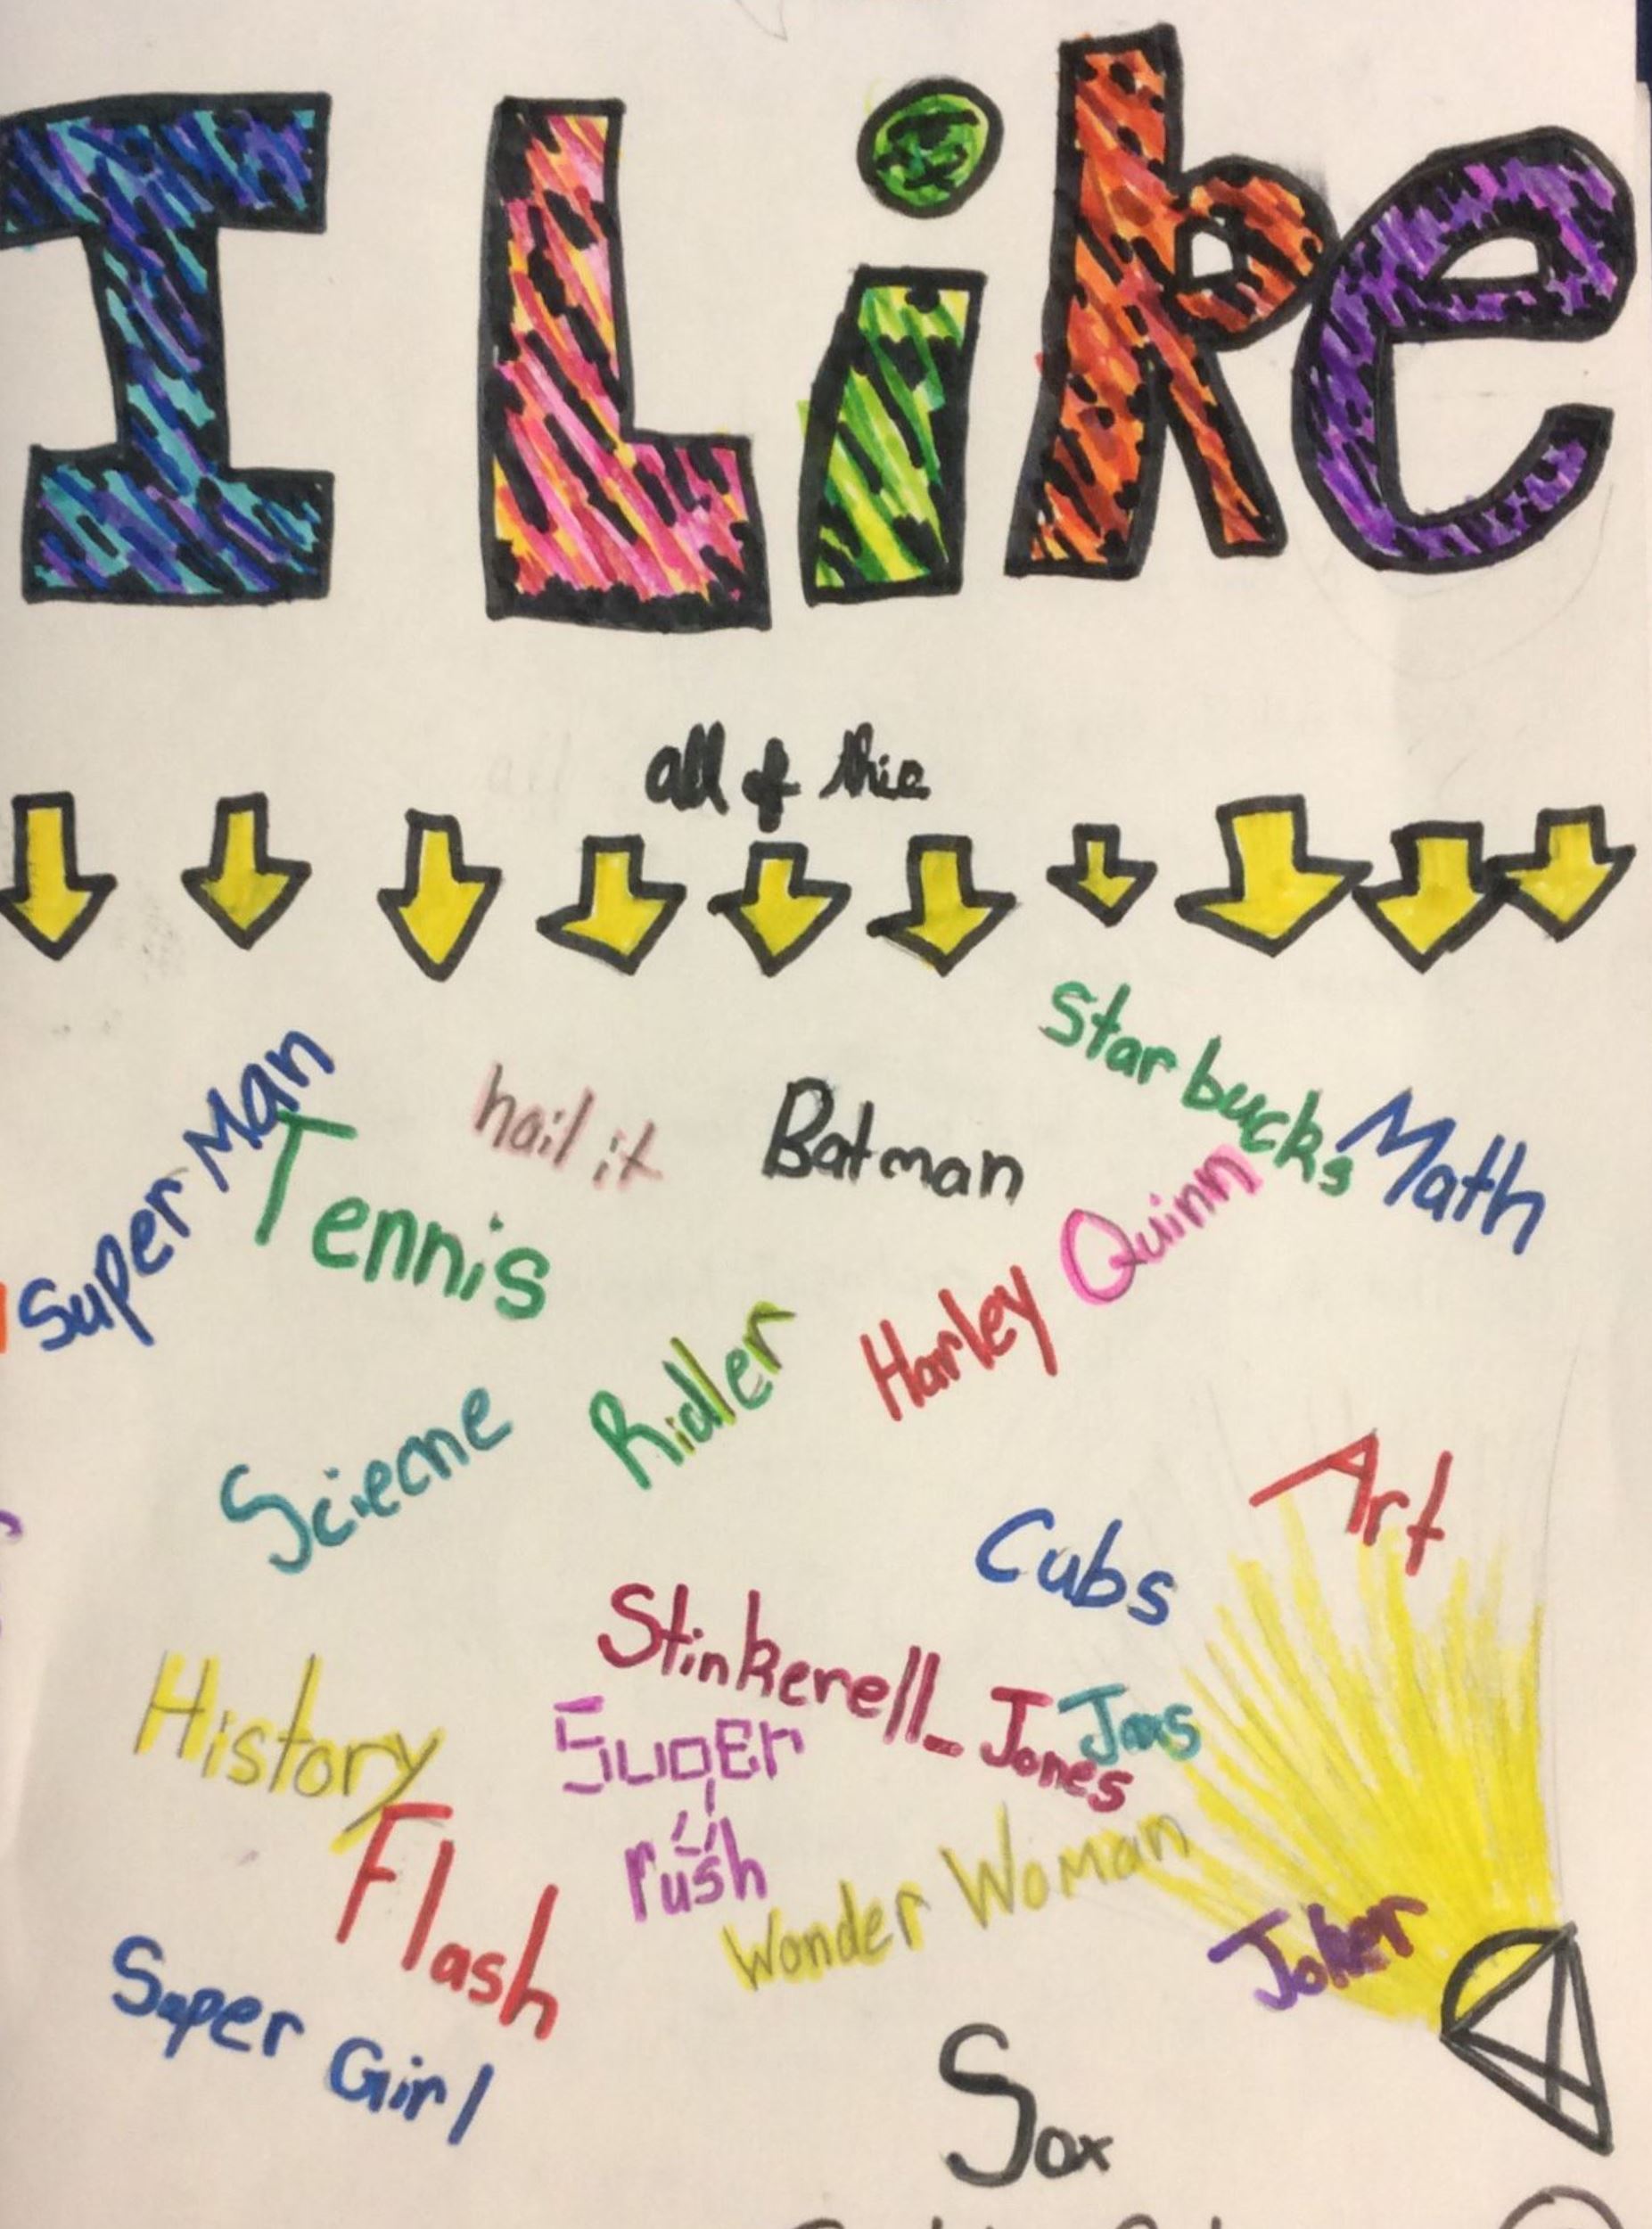 I Like
all of this
Starbucks
Super Man
hail it
Batman
Math
Tennis
Harley Quinn
Ridler
Sciecne
Art
Cubs
Stinkerell_Jones
History
Super
rush
Flash
Wonder Woman
Joker
Super Girl
Sox